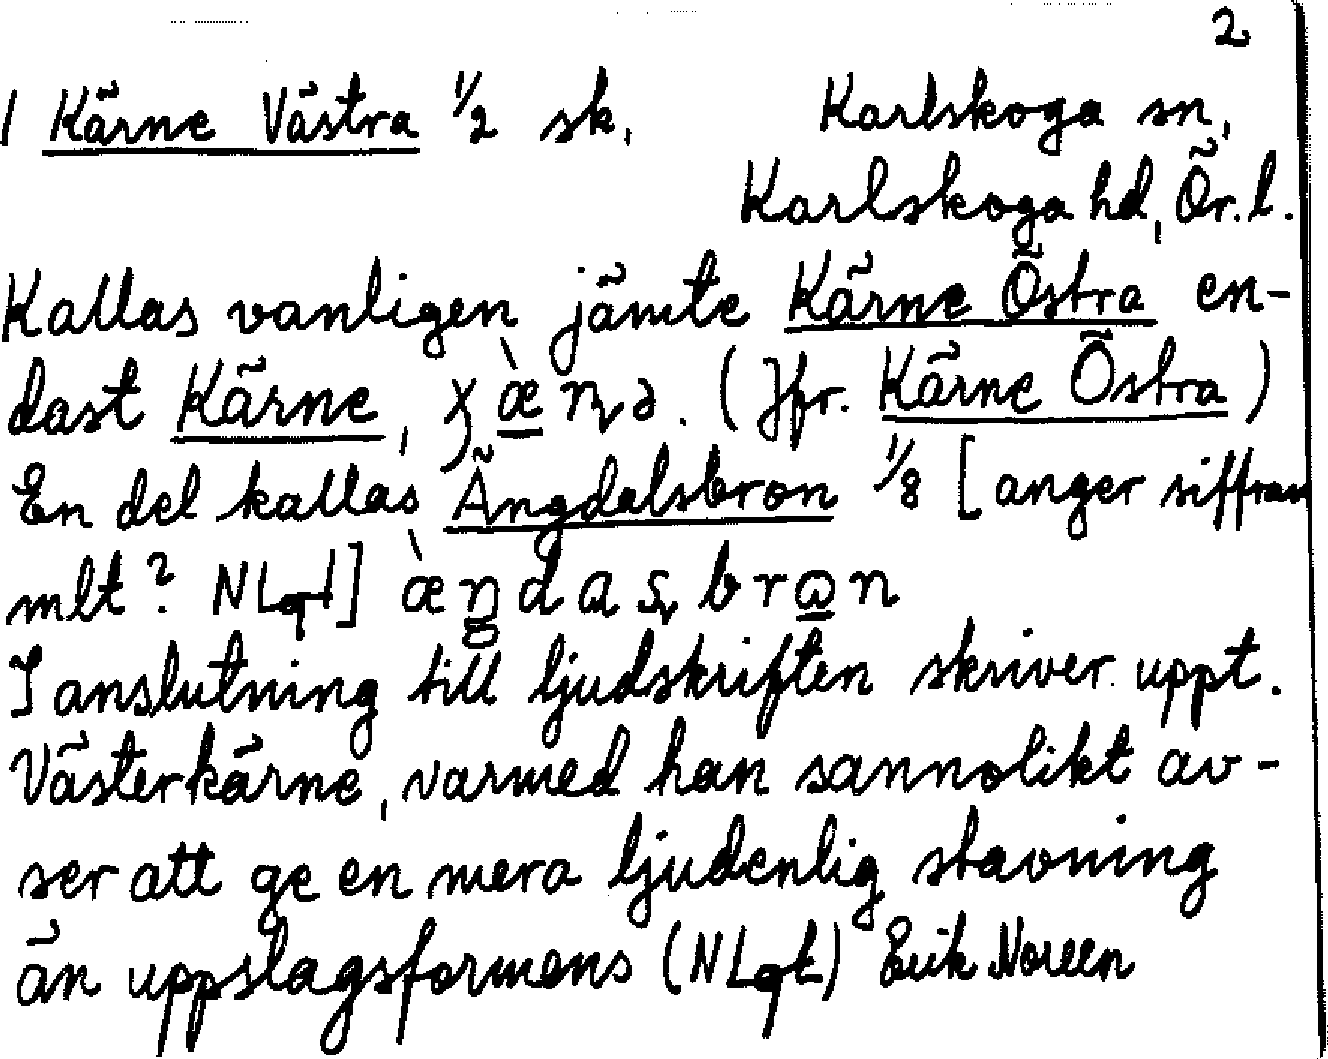 2
1 Kärne Västra 1/2 sk, Karlskoga sn,
Karlskoga hd, Ör. l.
Kallas vanligen jämte Kärne Östra en-
dast Kärne, χæ̀ɳə. (Jfr. Kärne Östra)
En del kallas Ängdalsbron 1/8 [anger siffran
mlt? NLqt] æ̀ŋdaʂbrωn
I anslutning till ljudskriften skriver uppt.
Västerkärne, varmed han sannolikt av-
ser att ge en mera ljudenlig stavning
än uppslagsformens (NLqt) Erik Noreen